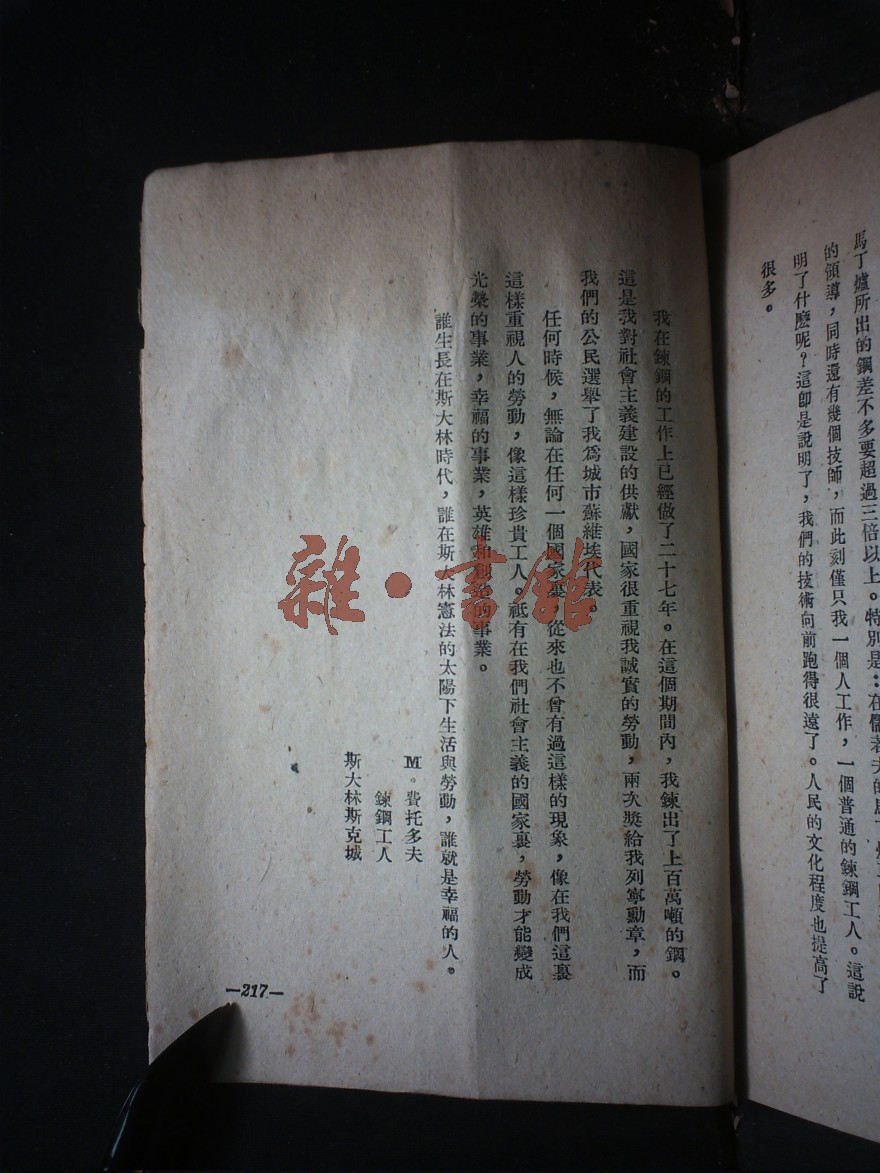 馬丁爐所出的鋼差不多要超過三倍以上。特別是：在
的領導，同時還有幾個技師，而此刻僅只我一個人工作，一個普通的鍊鋼工人。這說
明了什麽呢？這卽是說明了，我們的技術向前跑得很遠了。人民的文化程度也提高了
很多。
我在鍊鋼的工作上已經做了二十七年。在這個期間內，我鍊出了上百萬噸的鋼。
這是我對社會主義建設的供獻，國家很重視我誠實的勞動，兩次獎給我列寧勳章，而
我們的公民選舉了我爲城市蘇維埃代表。
任何時候，無論在任何一個國家裏，從來也不曾有過這樣的現象，像在我們這裏
這樣重視人的勞動，像這樣珍貴工人。祗有在我們社會主義的國家裏，勞動才能變成
光榮的事業，幸福的事業，英雄和創造的事業。
誰生長在斯大林時代，誰在斯大林憲法的太陽下生活與勞動，誰就是幸福的人。
M。費托多夫
鍊鋼工人
斯大林斯克城
—217—
雜·書館